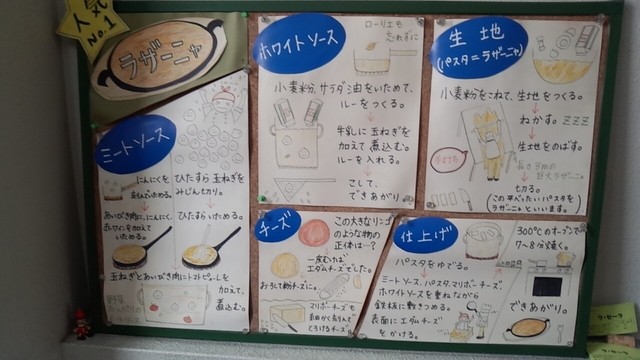 人気
No.1
ラザーニャ
ミートソース
にんにくを
きざんでいためる。
ひたすら 玉ねぎを
みじん切り。
あいびき肉に、にんにく、
赤ワインを加えて
いためる。
ひたすらいためる。
玉ねぎとあいびき肉にトマトピューレを
加えて、
煮込む。
ホワイトソース
ローリエも
忘れずに
小麦粉、サラダ油をいためて、
ルーをつくる。
牛乳に玉ねぎを
加えて煮込む。
ルーを入れる。
こして、
できあがり
生地
(パスタ=ラザーニャ)
小麦粉をこねて、生地をつくる。
ねかす。ZZZ
生地をのばす。
切る。
(この平べったいパスタを
ラザーニャといいます。)
チーズ
この大きなリンゴ
のような物の
正体は…?
一皮むけば
エダムチーズでした。
おろして粉チーズに。
マリボーチーズも
細かく刻んで
とろけるチーズ
仕上げ
パスタをゆでる。
ミートソース、パスタ、マリボーチーズ、
ホワイトソースを重ねながら
鉄板に敷きつめる。
表面にエダムチーズ
をかける。
300℃のオーブンで
7〜8分焼く。
できあがり。